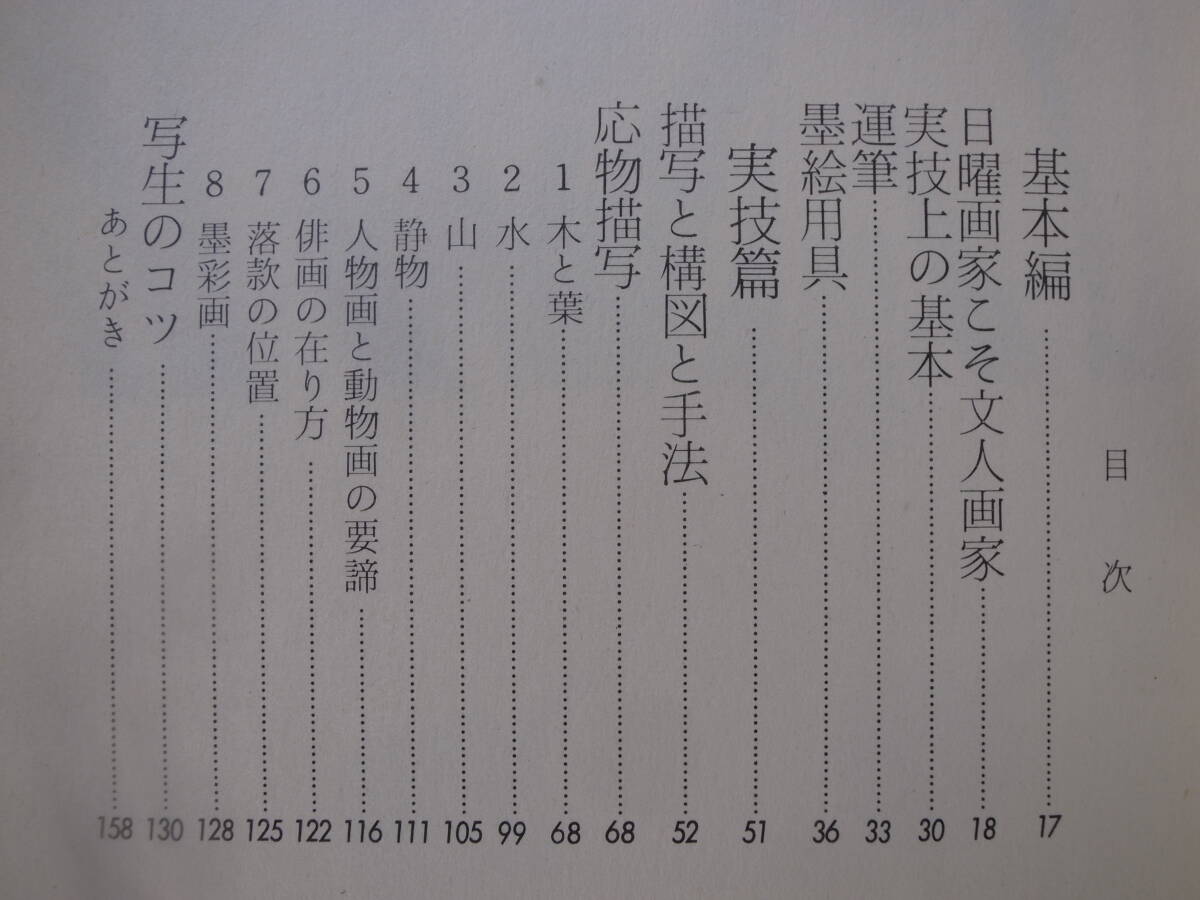 目次
基本編……17
日曜画家こそ文人画家……18
実技上の基本……30
運筆……33
墨絵用具……36
実技篇……51
描写と構図と手法……52
応物描写……68
1 木と葉……68
2 水……99
3 山……105
4 静物……111
5 人物画と動物画の要諦……116
6 俳画の在り方……122
7 落款の位置……125
8 墨彩画……128
写生のコツ……130
あとがき……158